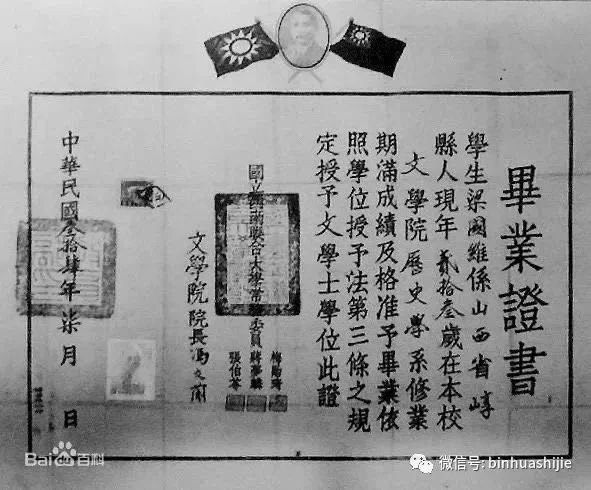 畢業證書
學生梁國維係山西省崞
縣人現年貳拾叁歲在本校
文學院歷史學系修業
期滿成績及格准予畢業依
照學位授予法第三條之規
定授予文學士學位此證
國立西南聯合大學常務委員
梅貽琦
蔣夢麟
張伯苓
文學院院長馮文蘭
中華民國叁拾肆年柒月 日
Bai百科
微信号: binhuashijie